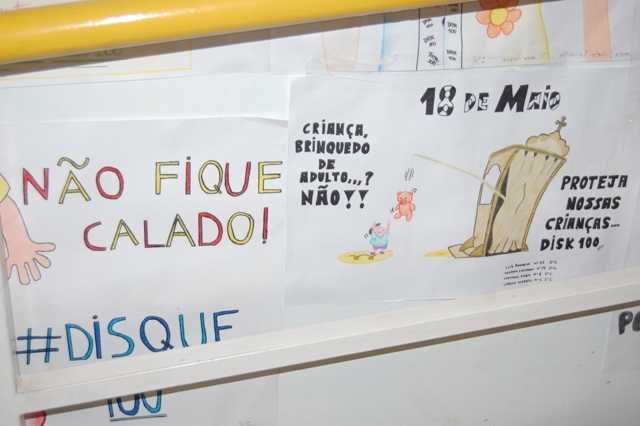 NÃO FIQUE
CALADO!
#DISQUE
100
18 DE MAIO
CRIANÇA,
BRINQUEDO
DE
ADULTO...?
NÃO!!
PROTEJA
NOSSAS
CRIANÇAS...
DISK 100